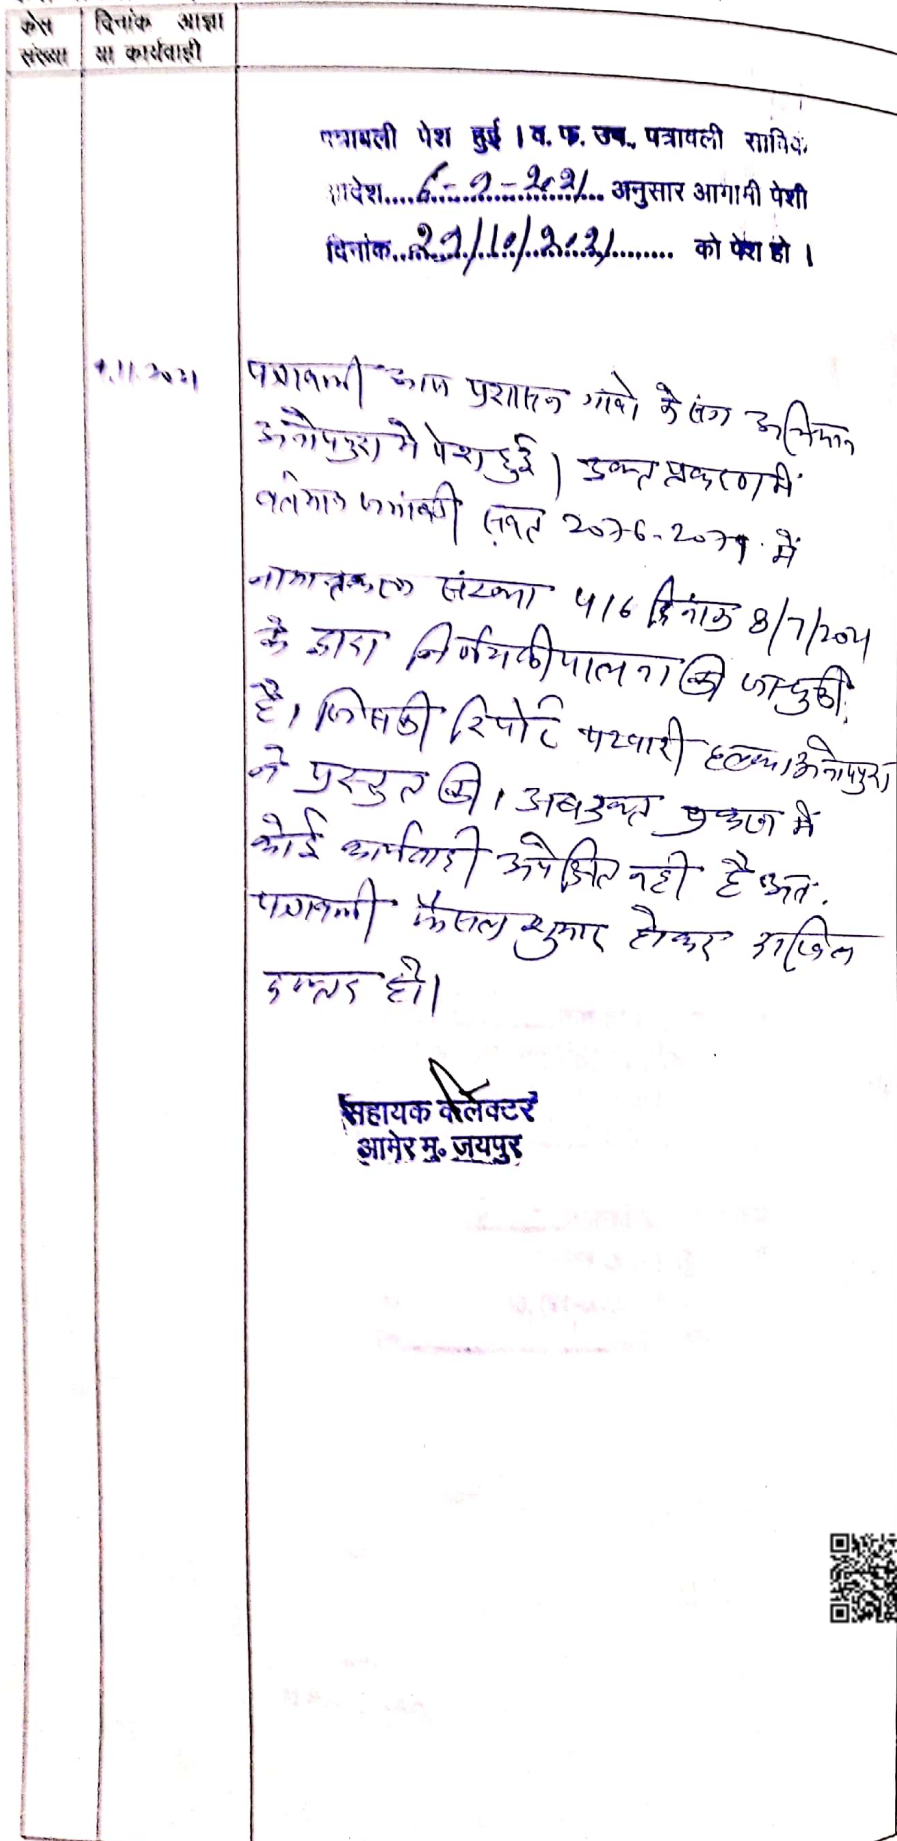 केस
संख्या
दिनांक आज्ञा
या कार्यवाही
पत्रावली पेश हुई । व. फ. उप., पत्रावली साबिक
आदेश....6-9-2021.... अनुसार आगामी पेशी
दिनांक...29/10/2021........ को पेश हो ।
9.11.2021
पत्रावली आज प्रशासन गांवो के संग अभियान
अनोपपुरा मे पेश हुई। उक्त प्रकरण में
वर्तमान जमाबंदी संवत 2076-2079 में
नामान्तकरण संख्या 416 दिनांक 8/7/2021
के द्वारा निर्णय की पालना की जा चुकी
है। जिसकी रिपोर्ट पटवारी हल्का अनोपपुरा
ने प्रस्तुत की। अब उक्त प्रकरण में
कोई कार्यवाही अपेक्षित नही है अत:
पत्रावली फैसल शुमार होकर दाखिल
दफ्तर हो।
सहायक कलेक्टर
आमेर मु. जयपुर